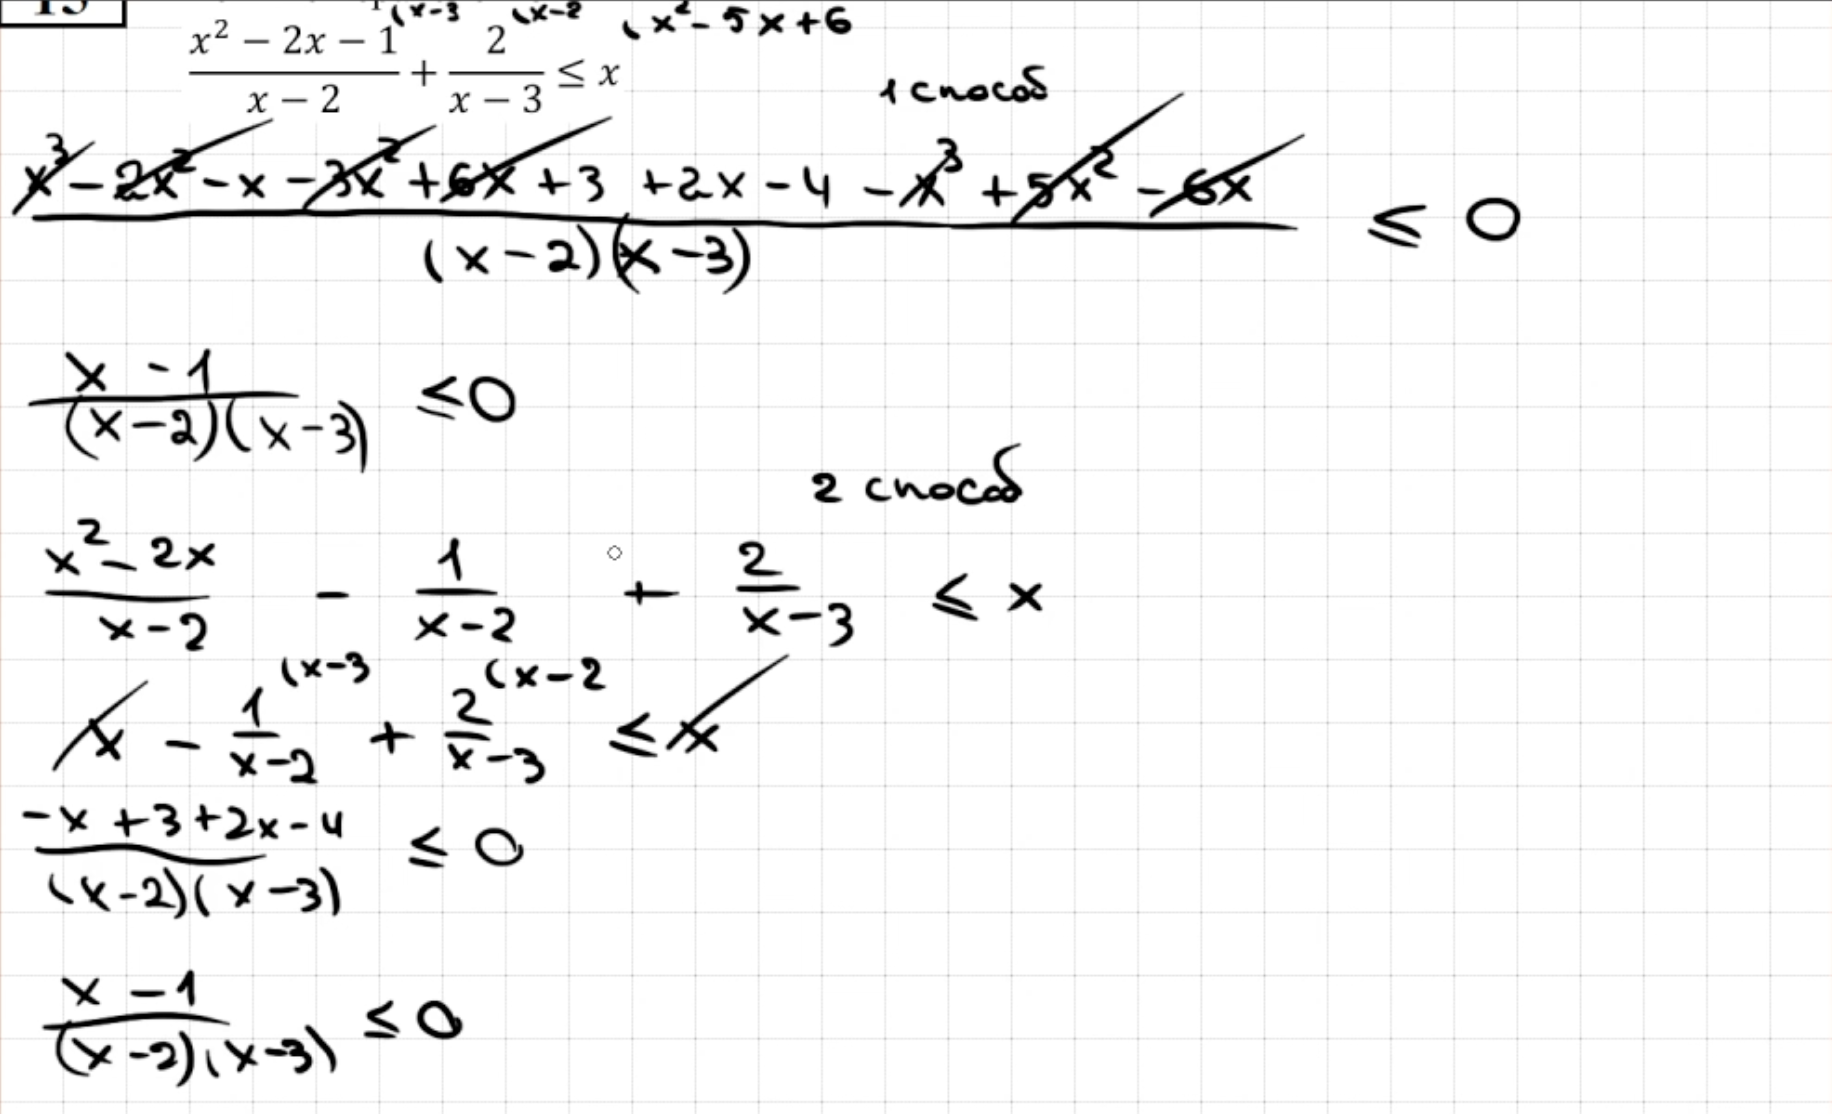 15
x² − 2x − 1 (x−3 / x − 2 + 2 (x−2 / x − 3 ≤ x (x² − 5x + 6
1 способ
x³ − 2x² − x − 3x² + 6x + 3 + 2x − 4 − x³ + 5x² − 6x / (x − 2)(x − 3) ≤ 0
x − 1 / (x − 2)(x − 3) ≤ 0
2 способ
x² − 2x / x − 2 − 1 / x − 2 + 2 / x − 3 ≤ x
x − 1 (x−3 / x − 2 + 2 (x−2 / x − 3 ≤ x
−x + 3 + 2x − 4 / (x − 2)(x − 3) ≤ 0
x − 1 / (x − 2)(x − 3) ≤ 0